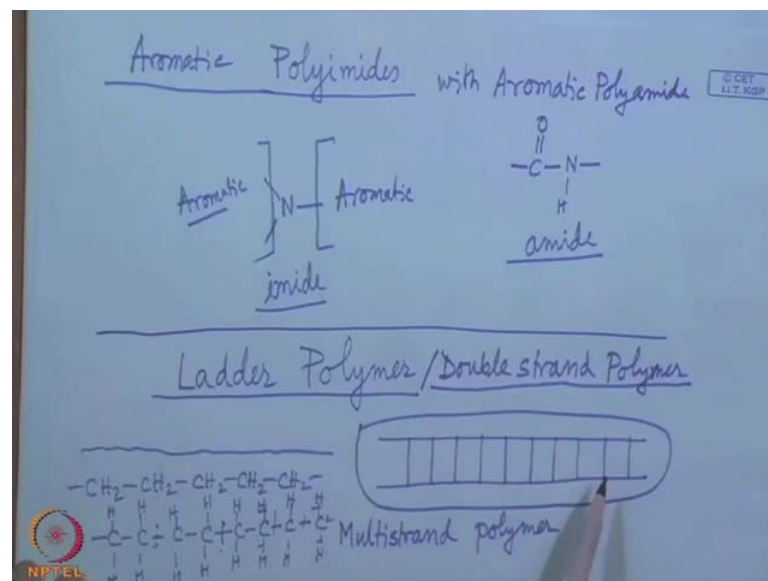 Aromatic Polyimides with Aromatic Polyamide
© CET
I.I.T. KGP
O
Aromatic N Aromatic
-C-N-
H
imide
amide
Ladder Polymer / Double strand Polymer
-CH2-CH2-CH2-CH2-CH2-
H H H H H H H H
-C-C-C-C-C-C-C-C-
H H H H H H H H
Multistrand polymer
NPTEL